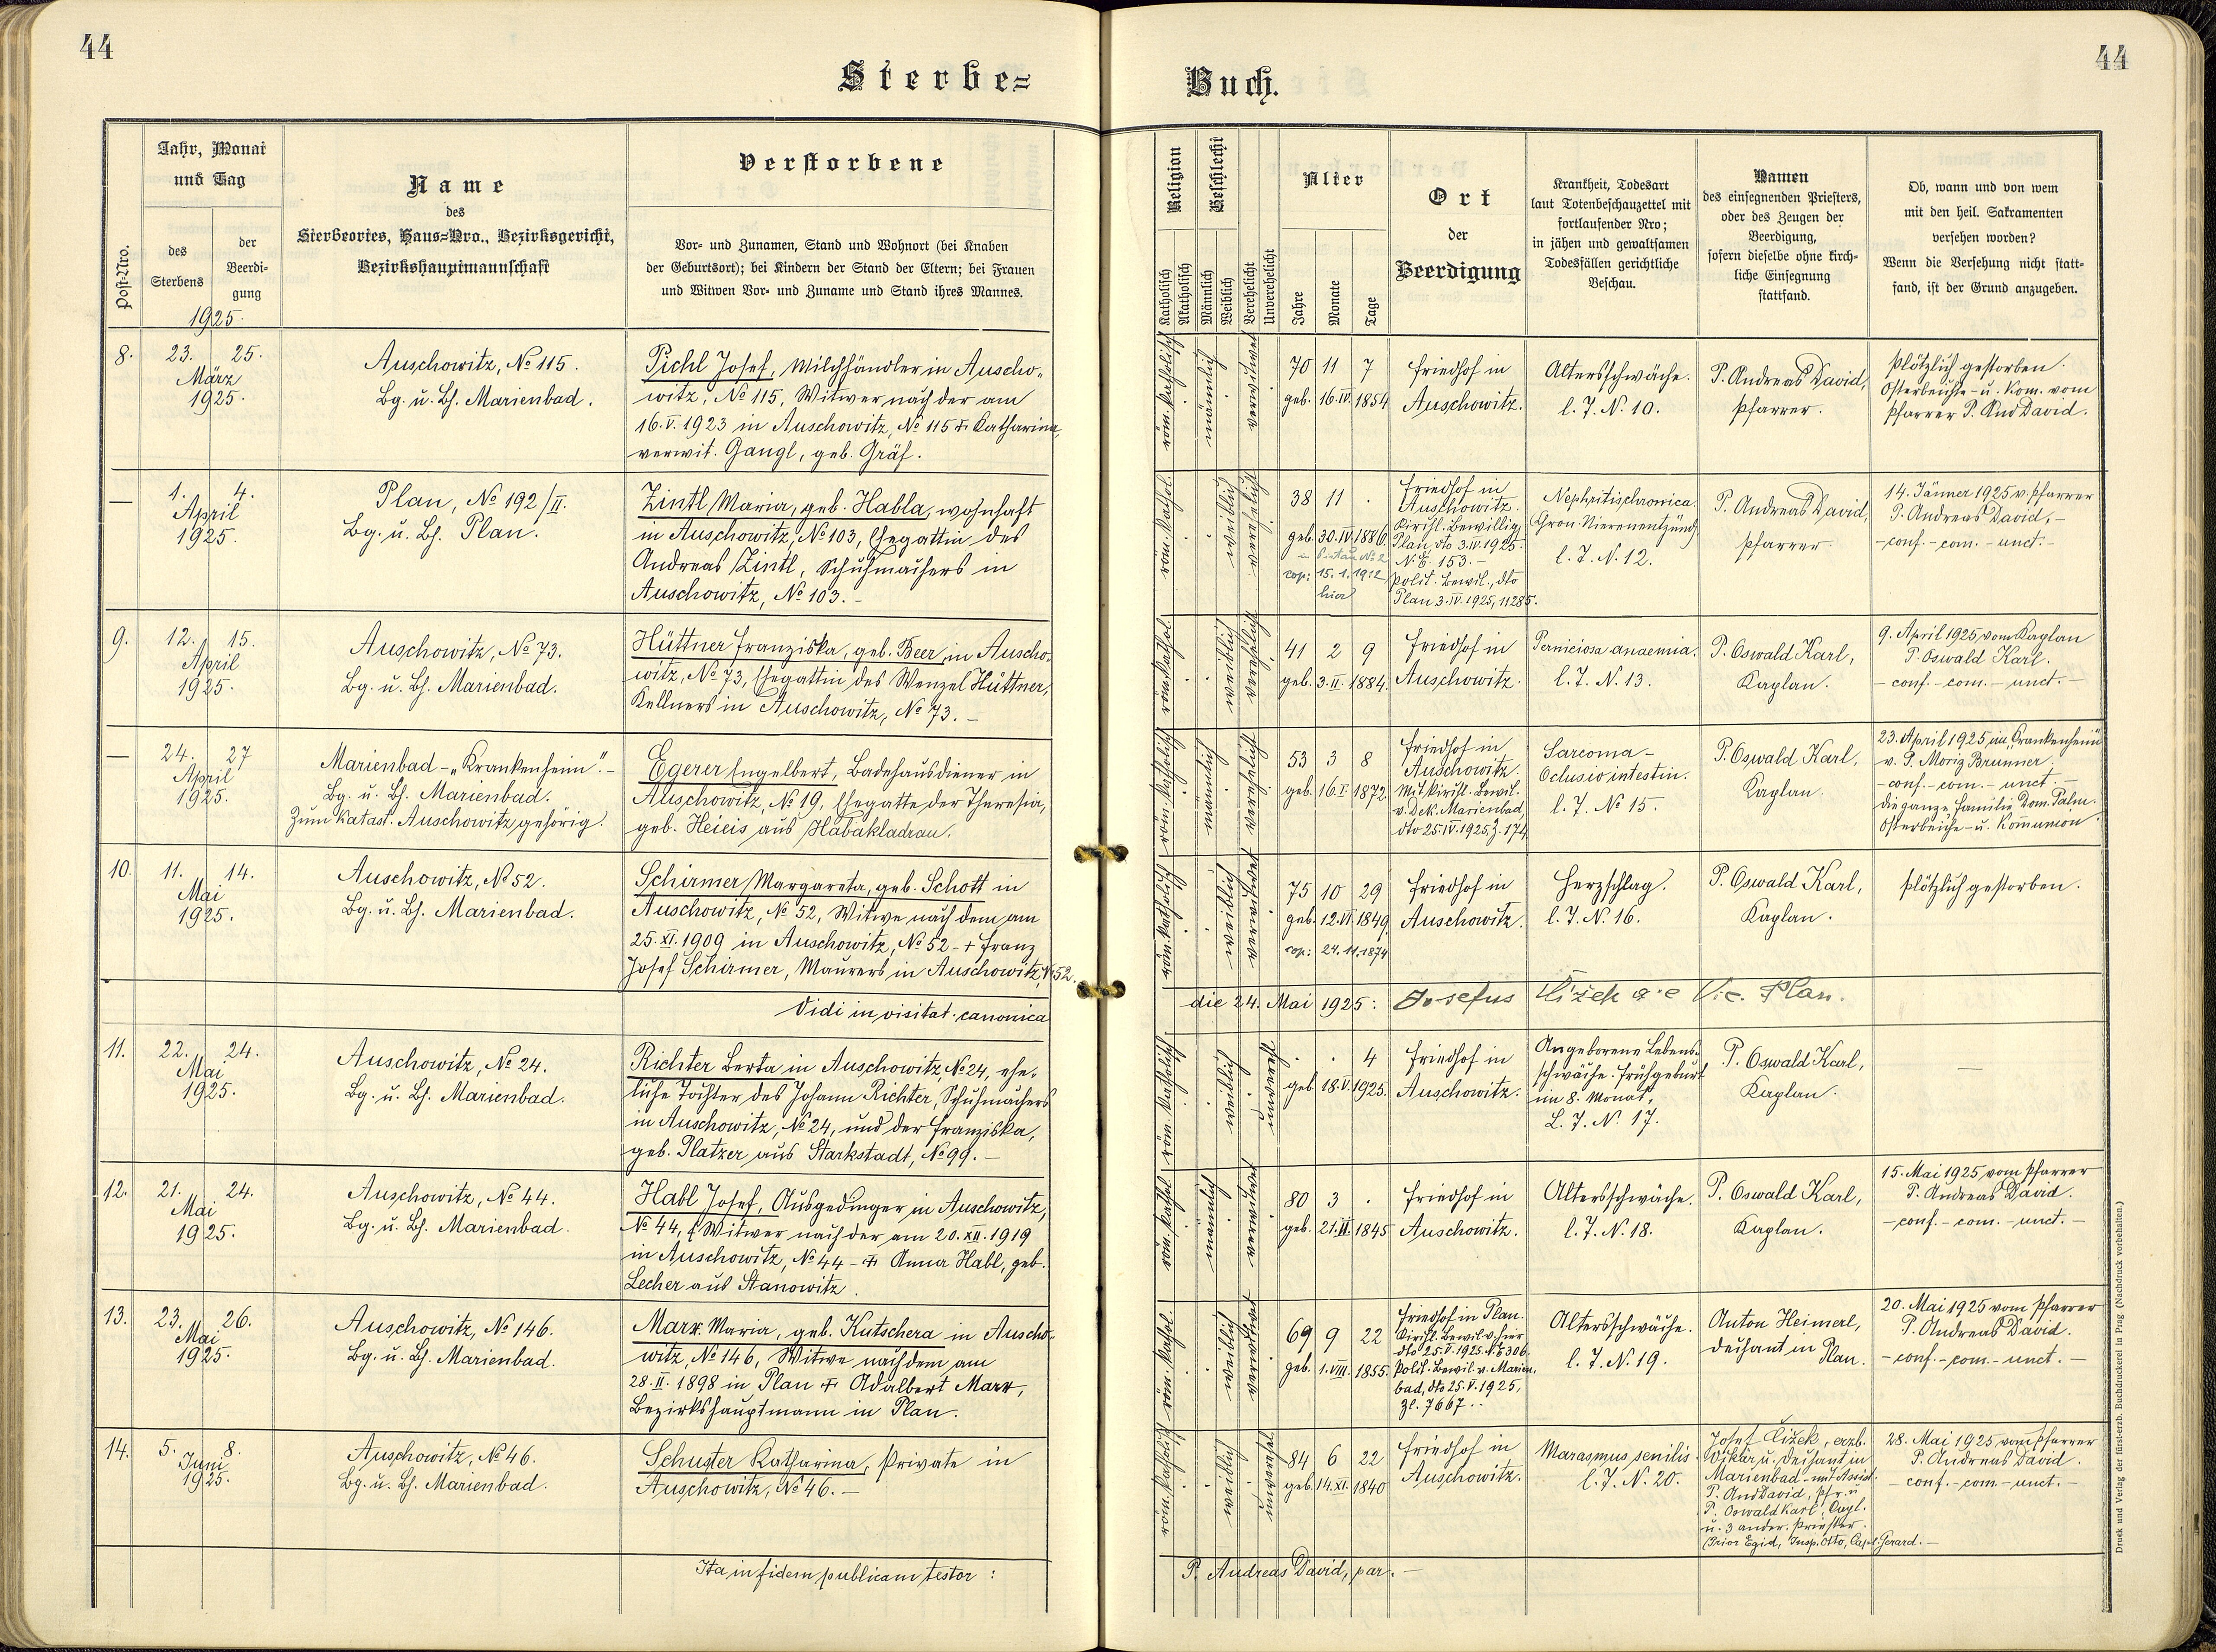 44
44
Sterbe=
Buch.
Post-Nro.
Jahr, Monat
und Tag
des
Sterbens
der
Beerdi-
gung
1925.
Name
des
Sterbeortes, Haus=Nro., Bezirksgericht,
Bezirkshauptmannschaft
Verstorbene
Vor- und Zunamen, Stand und Wohnort (bei Knaben
der Geburtsort); bei Kindern der Stand der Eltern; bei Frauen
und Witwen Vor- und Zuname und Stand ihres Mannes.
Religion
Katholisch
Akatholisch
Geschlecht
Männlich
Weiblich
Verehelicht
Unverehelicht
Alter
Jahre
Monate
Tage
Ort
der
Beerdigung
Krankheit, Todesart
laut Totenbeschauzettel mit
fortlaufender Nro;
in jähen und gewaltsamen
Todesfällen gerichtliche
Beschau.
Namen
des einsegnenden Priesters,
oder des Zeugen der
Beerdigung,
sofern dieselbe ohne kirch-
liche Einsegnung
stattfand.
Ob, wann und von wem
mit den heil. Sakramenten
versehen worden?
Wenn die Versehung nicht statt-
fand, ist der Grund anzugeben.
8.
23. 25.
März
1925.
Auschowitz, No 115.
Bg. u. Bh. Marienbad.
Pichl Josef, Milchhändler in Auscho-
witz, No 115, Witwer nach der am
16. V. 1923 in Auschowitz, No 115 + Katharina,
verwit. Gangl, geb. Gräf.
röm. katholisch
männlich
verwitwet
70 11 7
geb. 16. IV. 1854
Friedhof in
Auschowitz.
Altersschwäche.
l. J. N. 10.
P. Andreas David,
Pfarrer.
Plötzlich gestorben.
Osterbeichte- u. Kom. vom
Pfarrer P. And David.
—
1. 4.
April
1925.
Plan, No 192/II.
Bg. u. Bh. Plan.
Zintl Maria, geb. Habla, wohnhaft
in Auschowitz, No 103, Ehegattin des
Andreas Zintl, Schuhmachers in
Auschowitz, No 103. –
röm. kathol.
weiblich
verehelicht
38 11 .
geb. 30. IV. 1886
cop: 15. 1. 1912
hier
Friedhof in
Auschowitz.
Kirchl. Bewillig.
Plan, dto 3. IV. 1925.
N. E. 153. –
Polit. Bewil., dto
Plan 3. IV. 1925, 11285.
Nephritis chronica.
Chron. Nierenentzünd.
l. J. N. 12.
P. Andreas David,
Pfarrer.
14. Jänner 1925 v. Pfarrer
P. Andreas David, –
– conf. – com. – unct. –
9.
12. 15.
April
1925.
Auschowitz, No 73.
Bg. u. Bh. Marienbad.
Hüttner Franziska, geb. Beer in Auscho-
witz, No 73, Ehegattin des Wenzel Hüttner,
Kellners in Auschowitz, No 73. –
röm. kathol.
weiblich
verehelicht
41 2 9
geb. 3. II. 1884.
Friedhof in
Auschowitz.
Perniciosa anaemia.
l. J. N. 13.
P. Oswald Karl,
Kaplan.
9. April 1925 vom Kaplan
P. Oswald Karl.
– conf. – com. – unct. –
—
24. 27
April
1925.
Marienbad – „Krankenheim". –
Bg. u. Bh. Marienbad.
Zum Katast. Auschowitz gehörig.
Egerer Engelbert, Badehausdiener in
Auschowitz, No 19, Ehegatte der Theresia,
geb. Heicis aus Habakladrau.
röm. katholisch
männlich
verehelicht
53 3 8
geb. 16. I. 1872
Friedhof in
Auschowitz.
Mit kirchl. Bewil.
v. Dek. Marienbad,
dto 25. IV. 1925, Z. 174
Sarcoma –
Oclusio intestin.
l. J. No 15.
P. Oswald Karl,
Kaplan.
23. April 1925 im „Krankenheim"
v. P. Moriz Brunner.
– conf. – com. – unct. –
die ganze Familie Dom. Palm.
Osterbeiche- u. Kommunion
10.
11. 14.
Mai
1925.
Auschowitz, No 52.
Bg. u. Bh. Marienbad.
Schirmer Margareta, geb. Schott in
Auschowitz, No 52, Witwe nach dem am
25. XI. 1909 in Auschowitz, No 52 – + Franz
Josef Schirmer, Maurers in Auschowitz, No 52.
röm. katholisch
weiblich
verwitwet
75 10 29
geb. 12. VI. 1849
cop: 24. 11. 1874
Friedhof in
Auschowitz.
Herzschlag.
l. J. N. 16.
P. Oswald Karl,
Kaplan.
Plötzlich gestorben.
Vidi in visitat. canonica
die 24. Mai 1925: Josefus Čížek a. e. Vic. Plan.
11.
22. 24.
Mai
1925.
Auschowitz, No 24.
Bg. u. Bh. Marienbad.
Richter Berta in Auschowitz, No 24, ehe-
liche Tochter des Johann Richter, Schuhmachers
in Auschowitz, No 24, und der Franziska,
geb. Platzer aus Starkstadt, No 99. –
röm. katholisch
weiblich
. . 4
geb. 18. V. 1925.
Friedhof in
Auschowitz.
Angeborene Lebens-
schwäche. Frühgeburt
im 8. Monat.
L. J. N. 17.
P. Oswald Karl,
Kaplan.
—
12.
21. 24.
Mai
1925.
Auschowitz, No 44.
Bg. u. Bh. Marienbad.
Habl Josef, Ausgedinger in Auschowitz,
No 44, Witwer nach der am 20. XII. 1919
in Auschowitz, No 44 – + Anna Habl, geb.
Lecher aus Stanowitz.
röm. kathol.
männlich
verwitwet
80 3 .
geb. 21. II. 1845
Friedhof in
Auschowitz.
Altersschwäche.
l. J. N. 18.
P. Oswald Karl,
Kaplan.
15. Mai 1925 vom Pfarrer
P. Andreas David.
– conf. – com. – unct. –
13.
23. 26.
Mai
1925.
Auschowitz, No 146.
Bg. u. Bh. Marienbad.
Marx Maria, geb. Kutschera in Auscho-
witz, No 146, Witwe nach dem am
28. II. 1898 in Plan + Adalbert Marx,
Bezirkshauptmann in Plan.
röm. kathol.
weiblich
verwitwet
69 9 22
geb. 1. VIII. 1855.
Friedhof in Plan.
Kirchl. Bewil. v. hier
dto 25. V. 1925. N. E 306.
Polit. Bewil. v. Marien-
bad, dto 25. V. 1925,
Zl. 7667..
Altersschwäche.
l. J. N. 19.
Anton Heimerl,
Dechant in
Plan.
20. Mai 1925 vom Pfarrer
P. Andreas David.
– conf. – com. – unct. –
14.
5. 8.
Juni
1925.
Auschowitz, No 46.
Bg. u. Bh. Marienbad.
Schuster Katharina, Private in
Auschowitz, No 46. –
röm. katholisch
weiblich
84 6 22
geb. 14. XI. 1840
Friedhof in
Auschowitz.
Marasmus senilis.
l. J. N. 20.
Josef Čížek, erzb.
Vikär u. Dechant in
Marienbad – mit Assist.
P. And David, Pfr. u
P. Oswald Karl, Capl.
u. 3 ander. Priester.
Prior Egid, Insp. Otto, Capl. Gerard. –
28. Mai 1925 vom Pfarrer
P. Andreas David.
– conf. – com. – unct. –
Ita in fidem publicam testor:
P. Andreas David, par. –
Druck und Verlag der fürst-erzb. Buchdruckerei in Prag (Nachdruck vorbehalten.)